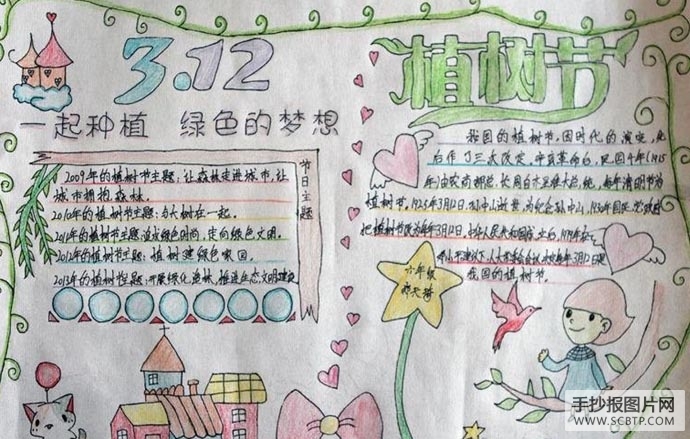 3.12
植树节
一起种植 绿色的梦想
节日主题
2009年的植树节主题:让森林走进城市,让
城市拥抱森林。
2010年的植树节主题:与长树在一起。
2011年的植树节主题:
2012年的植树节主题:植树建绿色家园。
2013年的植树节主题:开展绿化造林,推进生态文明建设
我国的植树节,因时代的演变,先
后作了三次改定,辛亥革命后,民国四年(1915
年)由农商部总长周自齐呈准大总统,每年清明节为
植树节。1925年3月12日,孙中山逝世,为纪念孙中山,
把植树节改为每年3月12日,中华人民共和国成立后,1979年在
我国的植树节。
六年级
手抄报图片网
WWW.SCBTP.COM